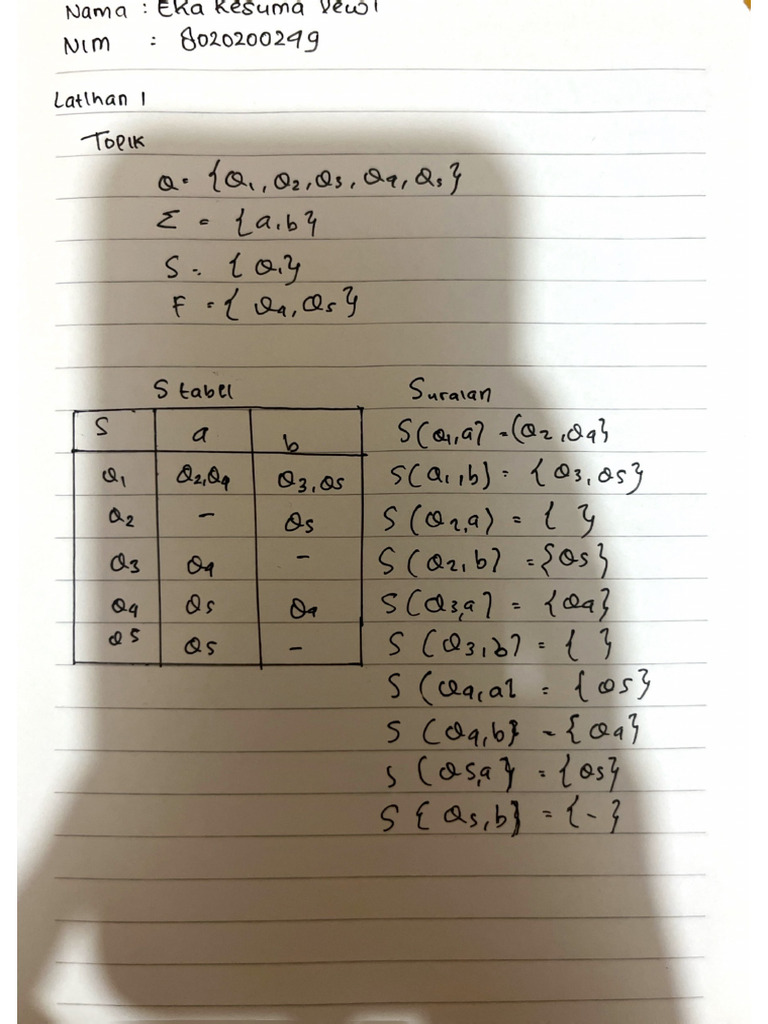 Nama : Eka Kesuma Dewi
NIM : 8020200249
Latihan 1
Topik
Q = {Q1, Q2, Q3, Q4, Q5}
Σ = {a, b}
S = {Q1}
F = {Q4, Q5}
S tabel
S a b
Q1 Q2,Q4 Q3,Q5
Q2 - Q5
Q3 Q4 -
Q4 Q5 Q4
Q5 Q5 -
Suraian
S(Q1,a) = (Q2,Q4}
S(Q1,b) = {Q3,Q5}
S(Q2,a) = { }
S(Q2,b) = {Q5}
S(Q3,a) = {Q4}
S(Q3,b) = { }
S(Q4,a) = {Q5}
S(Q4,b} = {Q4}
S(Q5,a} = {Q5}
S{Q5,b} = {-}